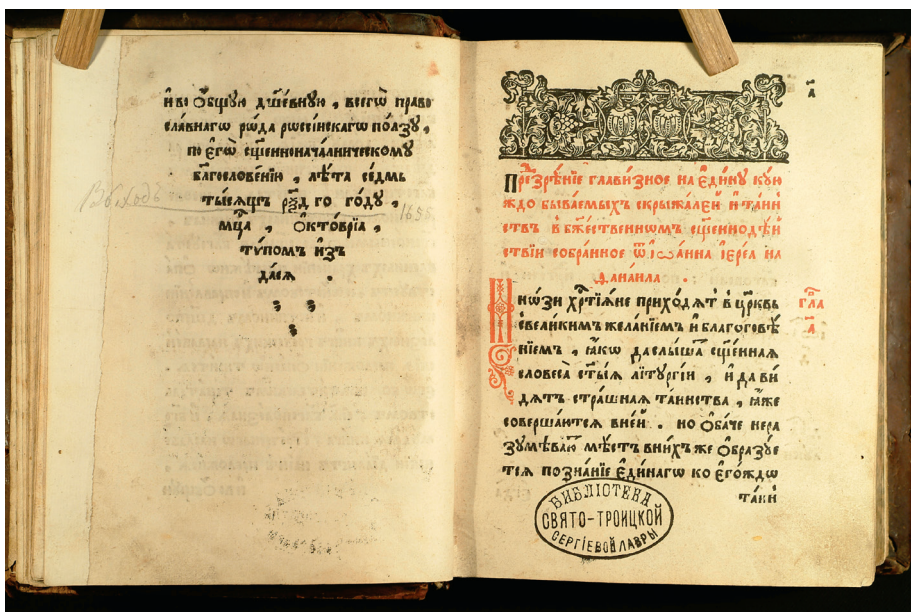 и҆ во ѻ҆́бщую дш҃е́вную , всегѡ̀ право
сла́внагѡ ро́да рѡссі́искагѡ по́лзу ,
по є҆гѡ̀ сщ҃е́нноначалническому
бл҃гослове́нїю , лѣ́та се́дмь
ты́сящъ го го́ду ,
Выходъ
мц҃а , ѻ҆кто́врїа ,
1655.
ту́помъ и҆з
да́сѧ .
а҃
Презрѣ́нїе глави́зное на є҆ди́ну кую
ждо быва́емыхъ скрыжа́лей и҆ та́ин
ствъ в бж҃е́ственнѡмъ сщ҃е́ннодѣ́и
ствїи со́бранное ѿ і҆ѡа́нна і҆ере́а на
д̾анаила .
Мно́зи хр҃тїѧне прихо́дѧт в цр҃ковь
гла
а҃
свели́кимъ жела́нїемъ и҆ бл҃гоговѣ́
нїемъ , ꙗ҆́кѡ даслы́шат сщ҃е́нная
словеса̀ ст҃ы́ѧ літургі́и , и҆ дави
дѧтъ стра́шная та́инства , ꙗ҆́же
соверша́ются вне́й . но ѻ҆ба́че нера
зумѣва́ют мѣ́ст вни́хъже ѻ҆бразуе
тся позна́нїе є҆ди́нагѡ коегѡ́ждѡ
та́ки
БИБЛІОТЕКА
СВЯТО-ТРОИЦКОЙ
СЕРГІЕВОЙ ЛАВРЫ